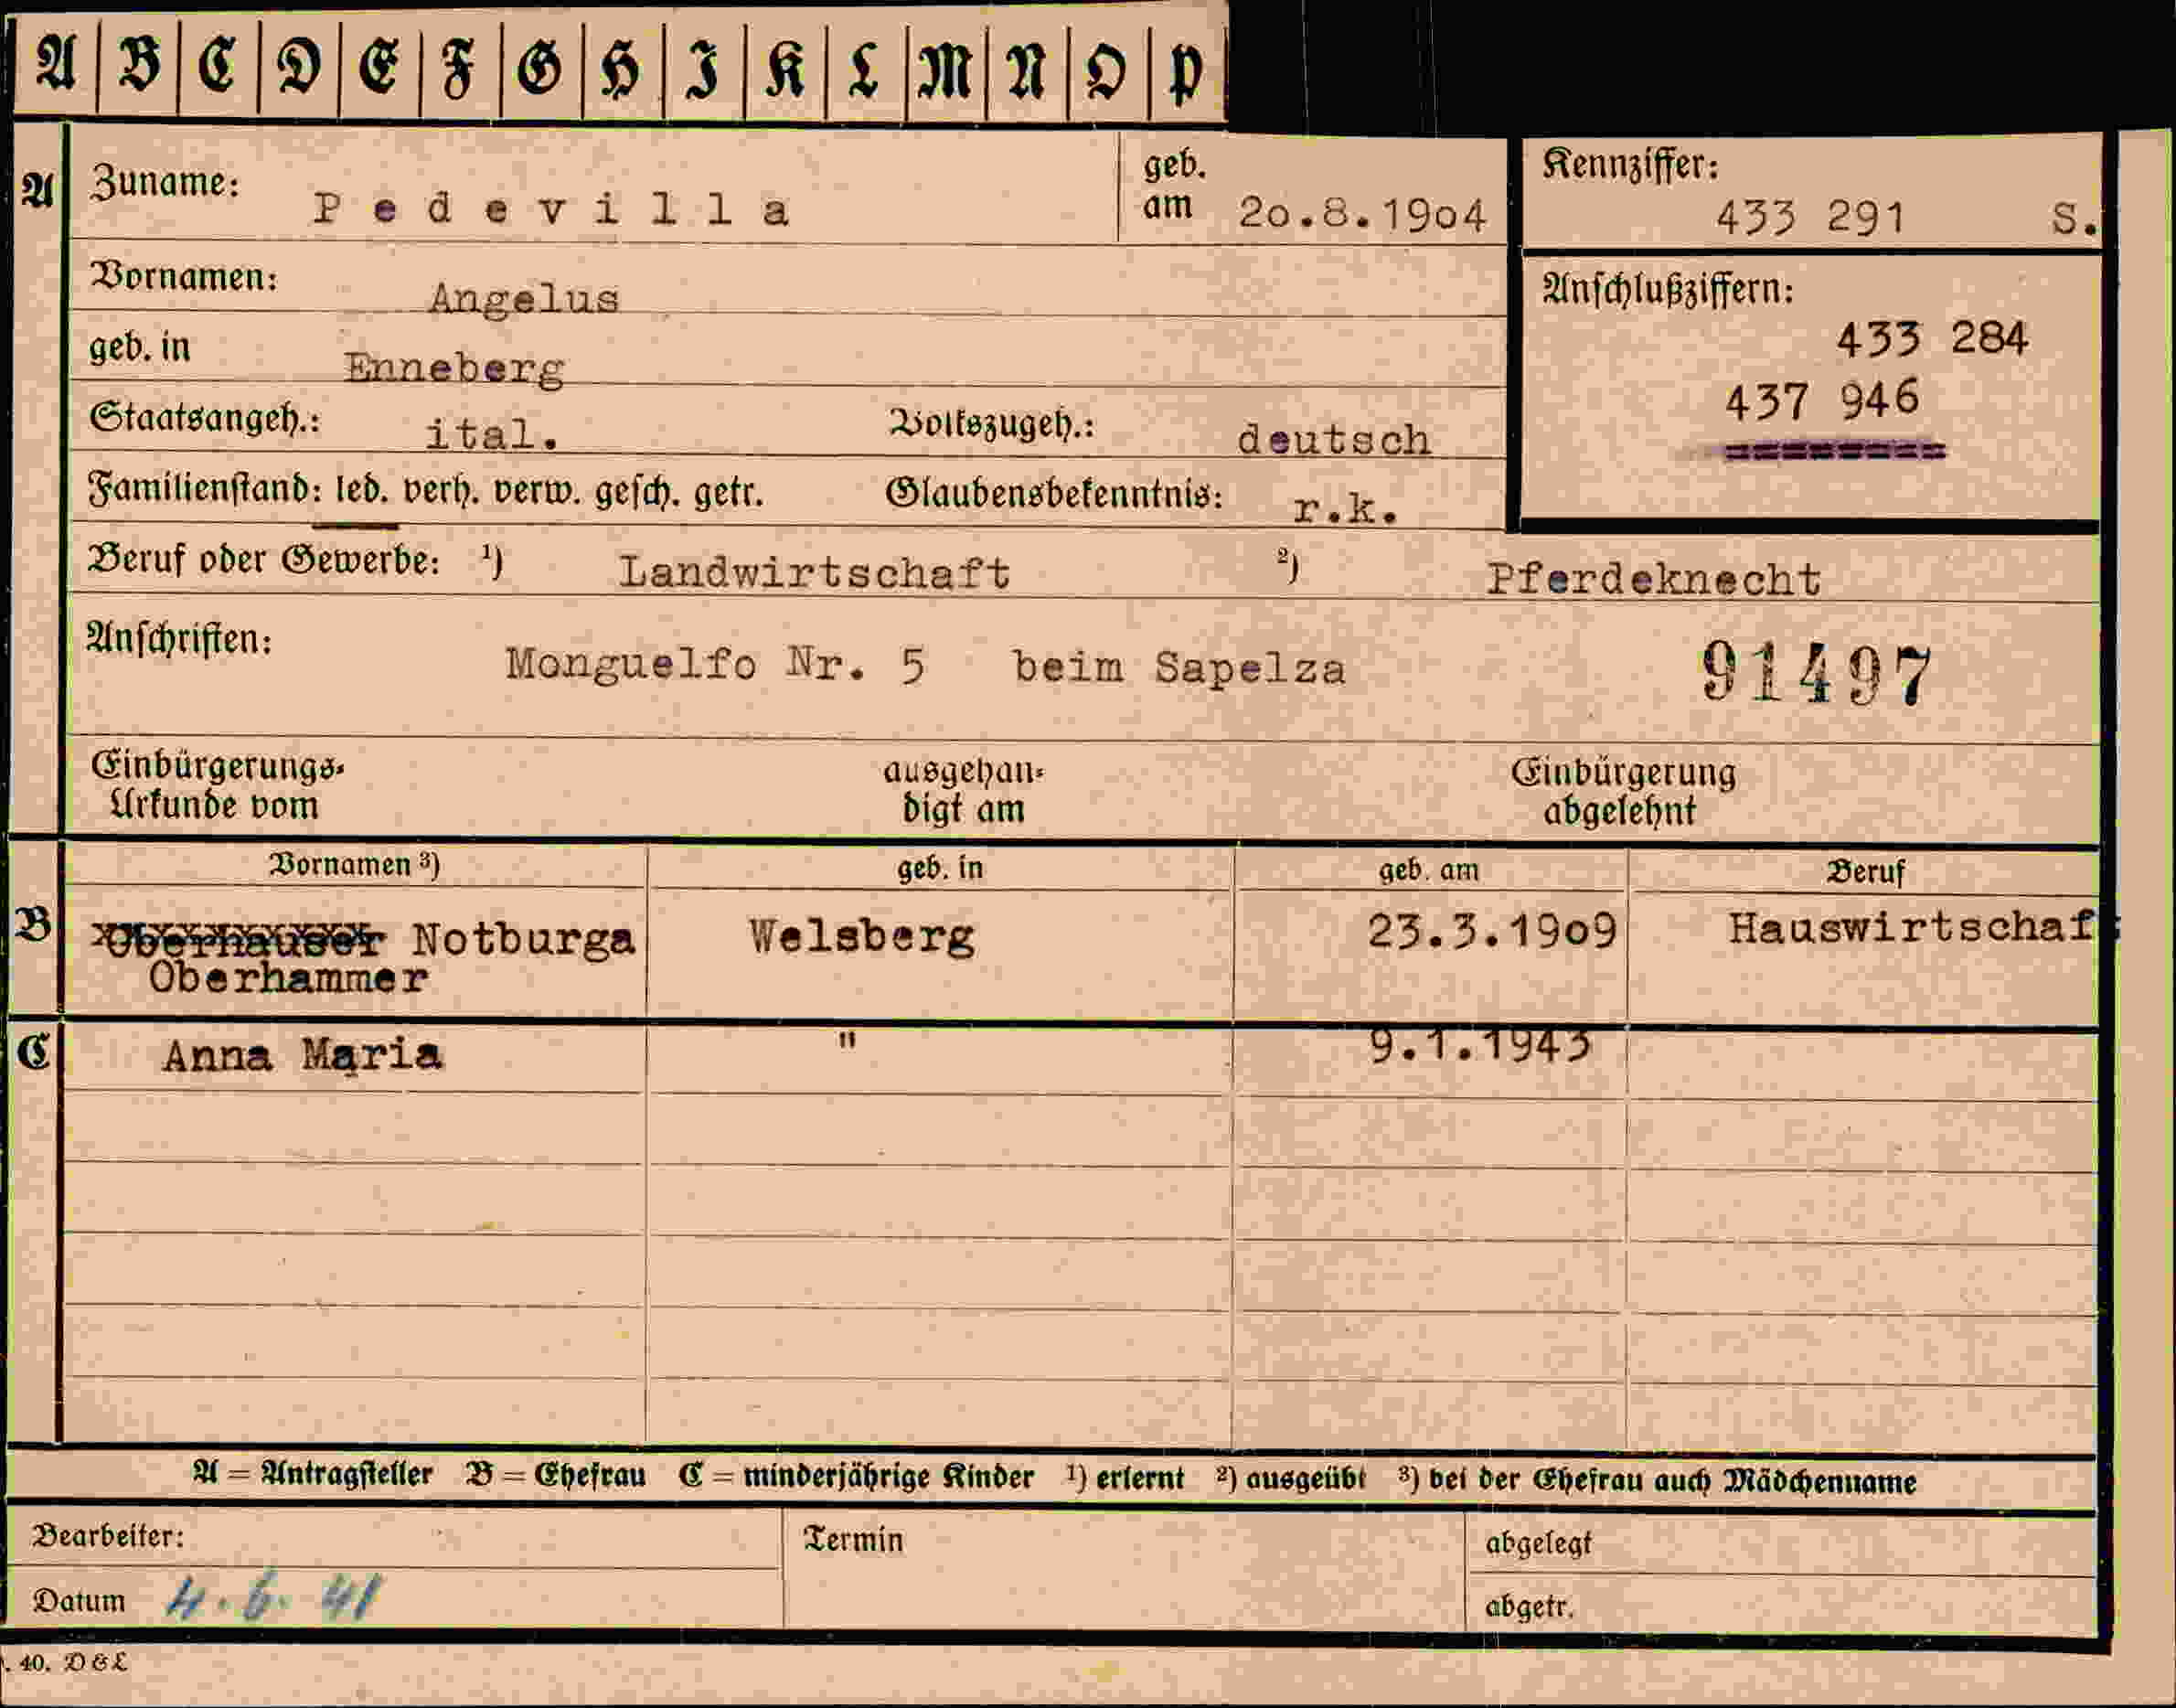 A B C D E F G H I K L M N O P
A Zuname: Pedevilla geb. am 20.8.1904 Kennziffer: 433 291 S.
Vornamen: Angelus Anschlußziffern:
433 284
geb. in Enneberg
437 946
Staatsangeh.: ital. Volkszugeh.: deutsch
Familienstand: led. verh. verw. gesch. getr. Glaubensbekenntnis: r.k.
Beruf oder Gewerbe: 1) Landwirtschaft 2) Pferdeknecht
Anschriften: Monguelfo Nr. 5 beim Sapelza 91497
Einbürgerungs- ausgehan- Einbürgerung
Urkunde vom digt am abgelehnt
Vornamen 3) geb. in geb. am Beruf
B Oberhauser Notburga Welsberg 23.3.1909 Hauswirtschaf
Oberhammer
C Anna Maria " 9.1.1943
A = Antragsteller B = Ehefrau C = minderjährige Kinder 1) erlernt 2) ausgeübt 3) bei der Ehefrau auch Mädchenname
Bearbeiter: Termin abgelegt
Datum 4.6.41 abgetr.
. 40. D & L